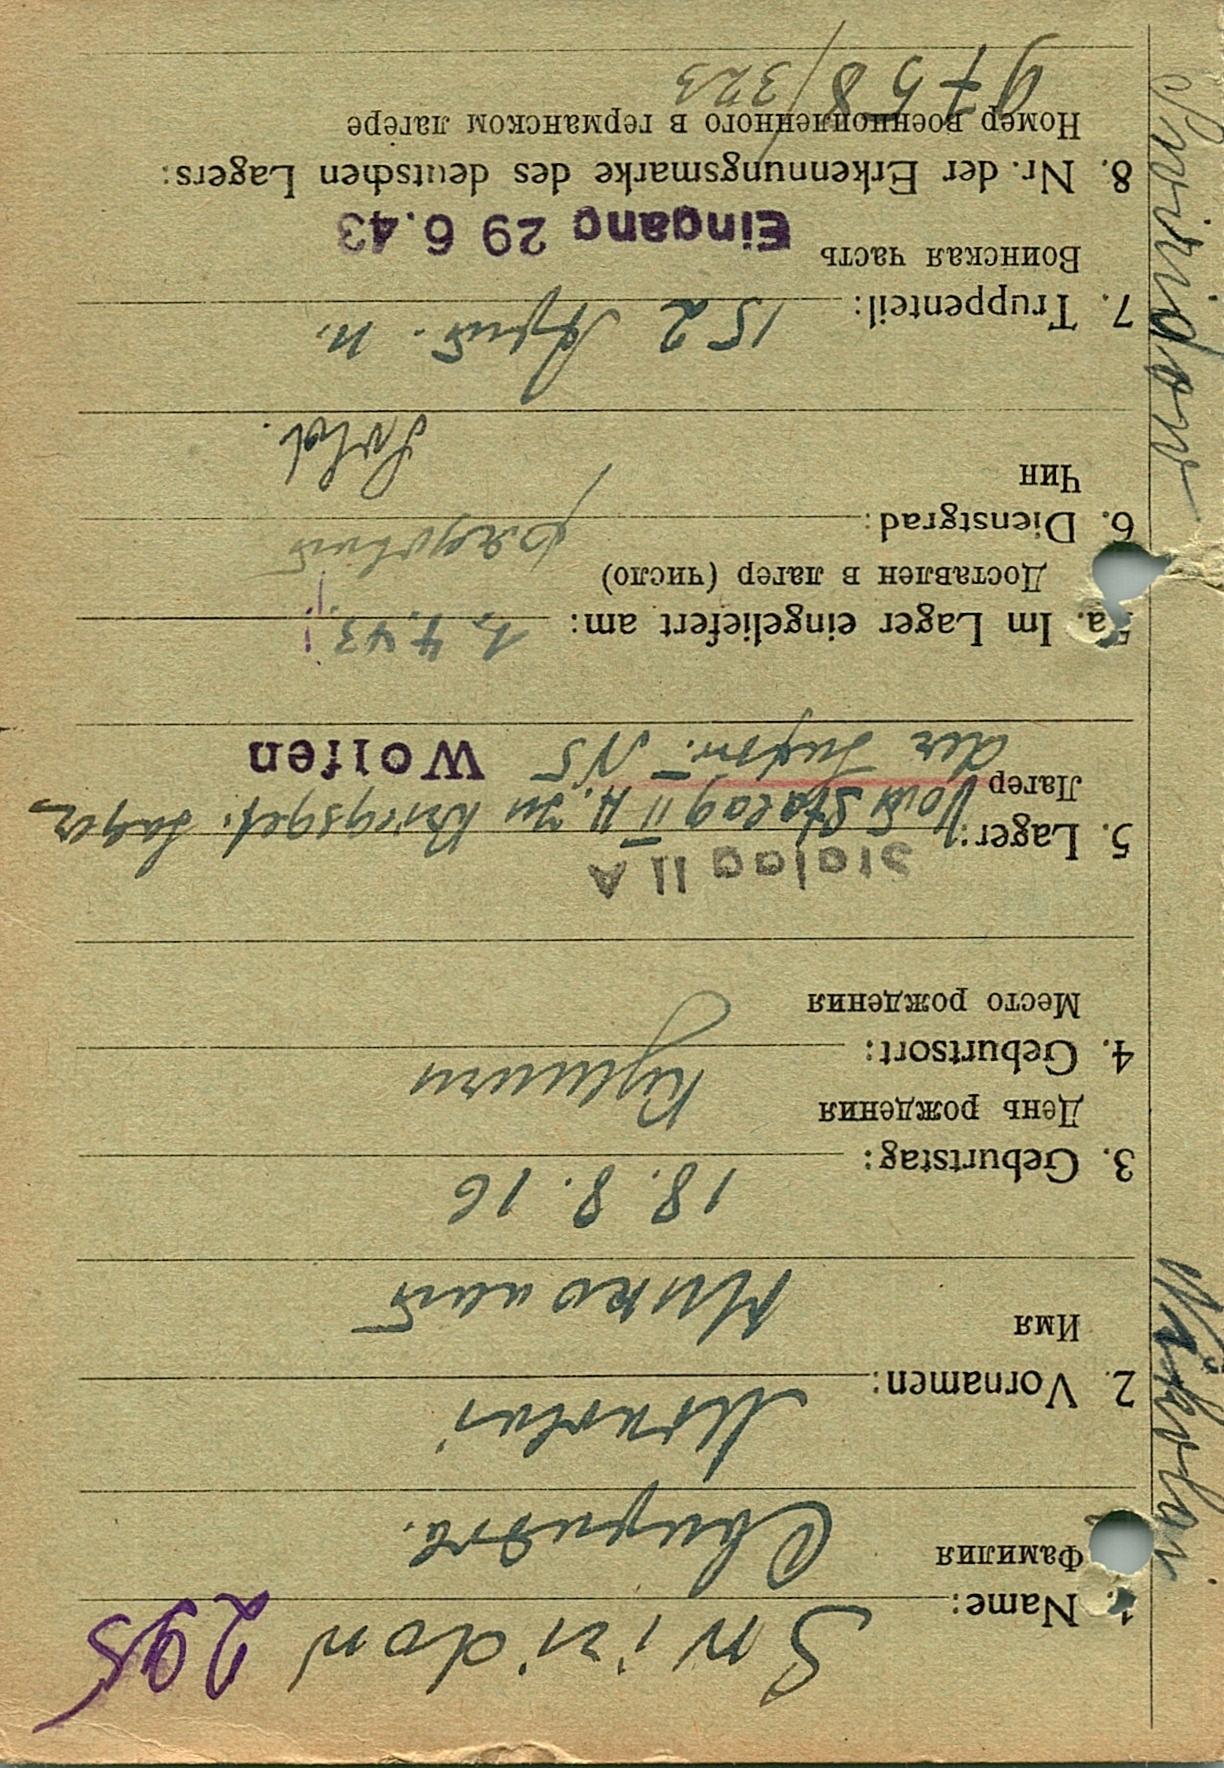 Swiridow 295
1. Name:
Фамилия
Свиридов.
Nikolai
2. Vornamen:
Имя
Николай
18. 8. 16
3. Geburtstag:
День рождения
4. Geburtsort:
Место рождения
Stalag II A
5. Lager: Vom Stalag II A. zu Kriegsgef. Lager
Лагер
der Luftw. N5 Wolfen
5a. Im Lager eingeliefert am: 1. 7. 43.
Доставлен в лагер (число)
6. Dienstgrad:
Чин
Sold.
7. Truppenteil: 152
Воинская часть
Eingang 29 6.43
8. Nr. der Erkennungsmarke des deutschen Lagers:
Номер военнопленного в германском лагере
9758/323
Nikolai Swiridow